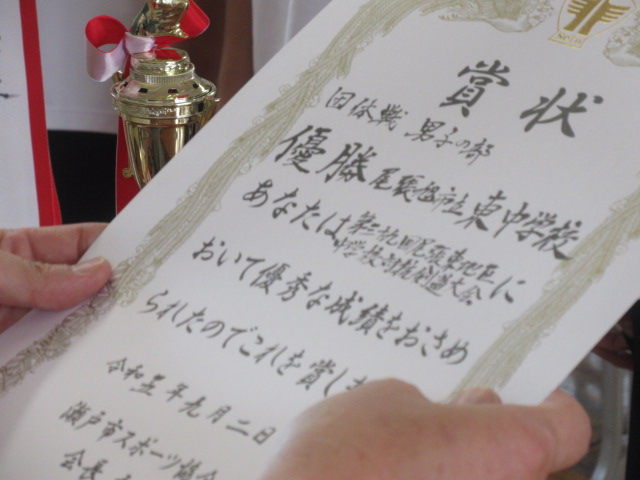 賞状
団体戦 男子の部
優勝 尾張旭市立東中学校
あなたは
尾張東地区
中学校剣道大会に
おいて優秀な成績をおさめ
られたのでこれを賞しま
令和五年九月二日
瀬戸市スポーツ協会
会長